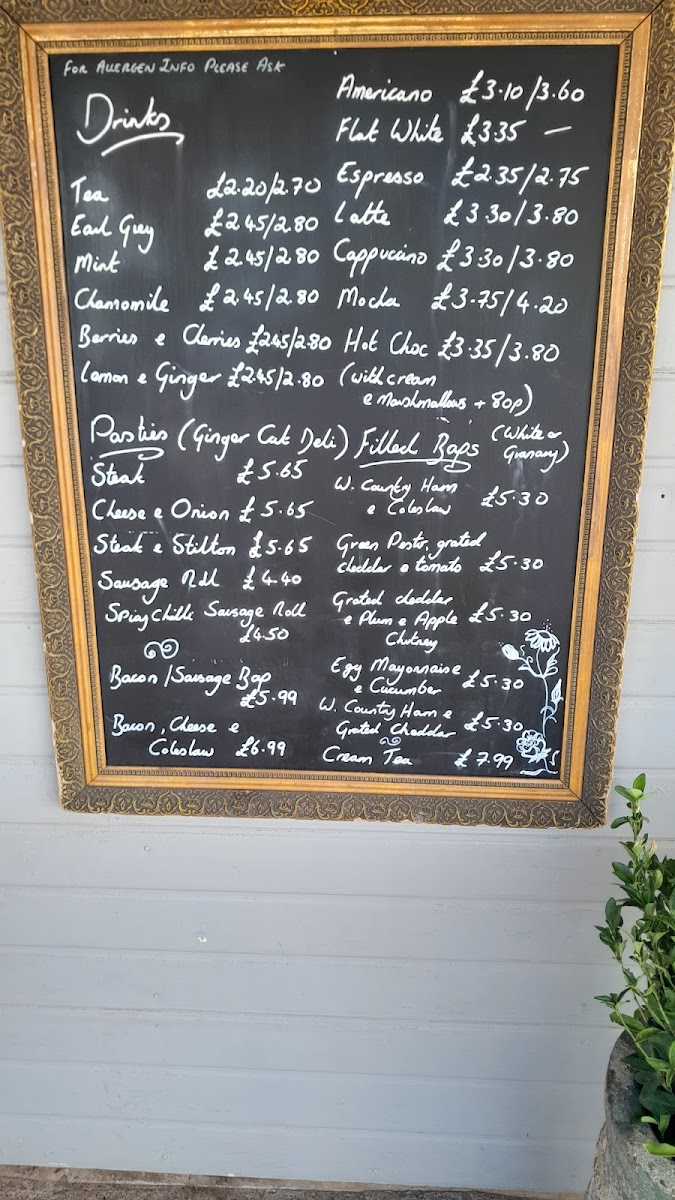 FOR ALLERGEN INFO PLEASE ASK
Drinks
Tea £2.20/2.70
Earl Grey £2.45/2.80
Mint £2.45/2.80
Chamomile £2.45/2.80
Berries e Cherries £2.45/2.80
Lemon e Ginger £2.45/2.80
Americano £3.10/3.60
Flat White £3.35 —
Espresso £2.35/2.75
Latte £3.30/3.80
Cappuccino £3.30/3.80
Mocha £3.75/4.20
Hot Choc £3.35/3.80
(with cream
e Marshmallows + 80p)
Pasties (Ginger Cat Deli)
Steak £5.65
Cheese e Onion £5.65
Steak e Stilton £5.65
Sausage Roll £4.40
Spicy Chilli Sausage Roll
£4.50
Bacon/Sausage Bap
£5.99
Bacon, Cheese e
Coleslaw £6.99
Filled Baps (White or
Granary)
W. Country Ham
e Coleslaw £5.30
Green Pesto, grated
cheddar e tomato £5.30
Grated cheddar
e Plum e Apple £5.30
Chutney
Egg Mayonnaise
e Cucumber £5.30
W. Country Ham e
Grated Cheddar £5.30
Cream Tea £7.99